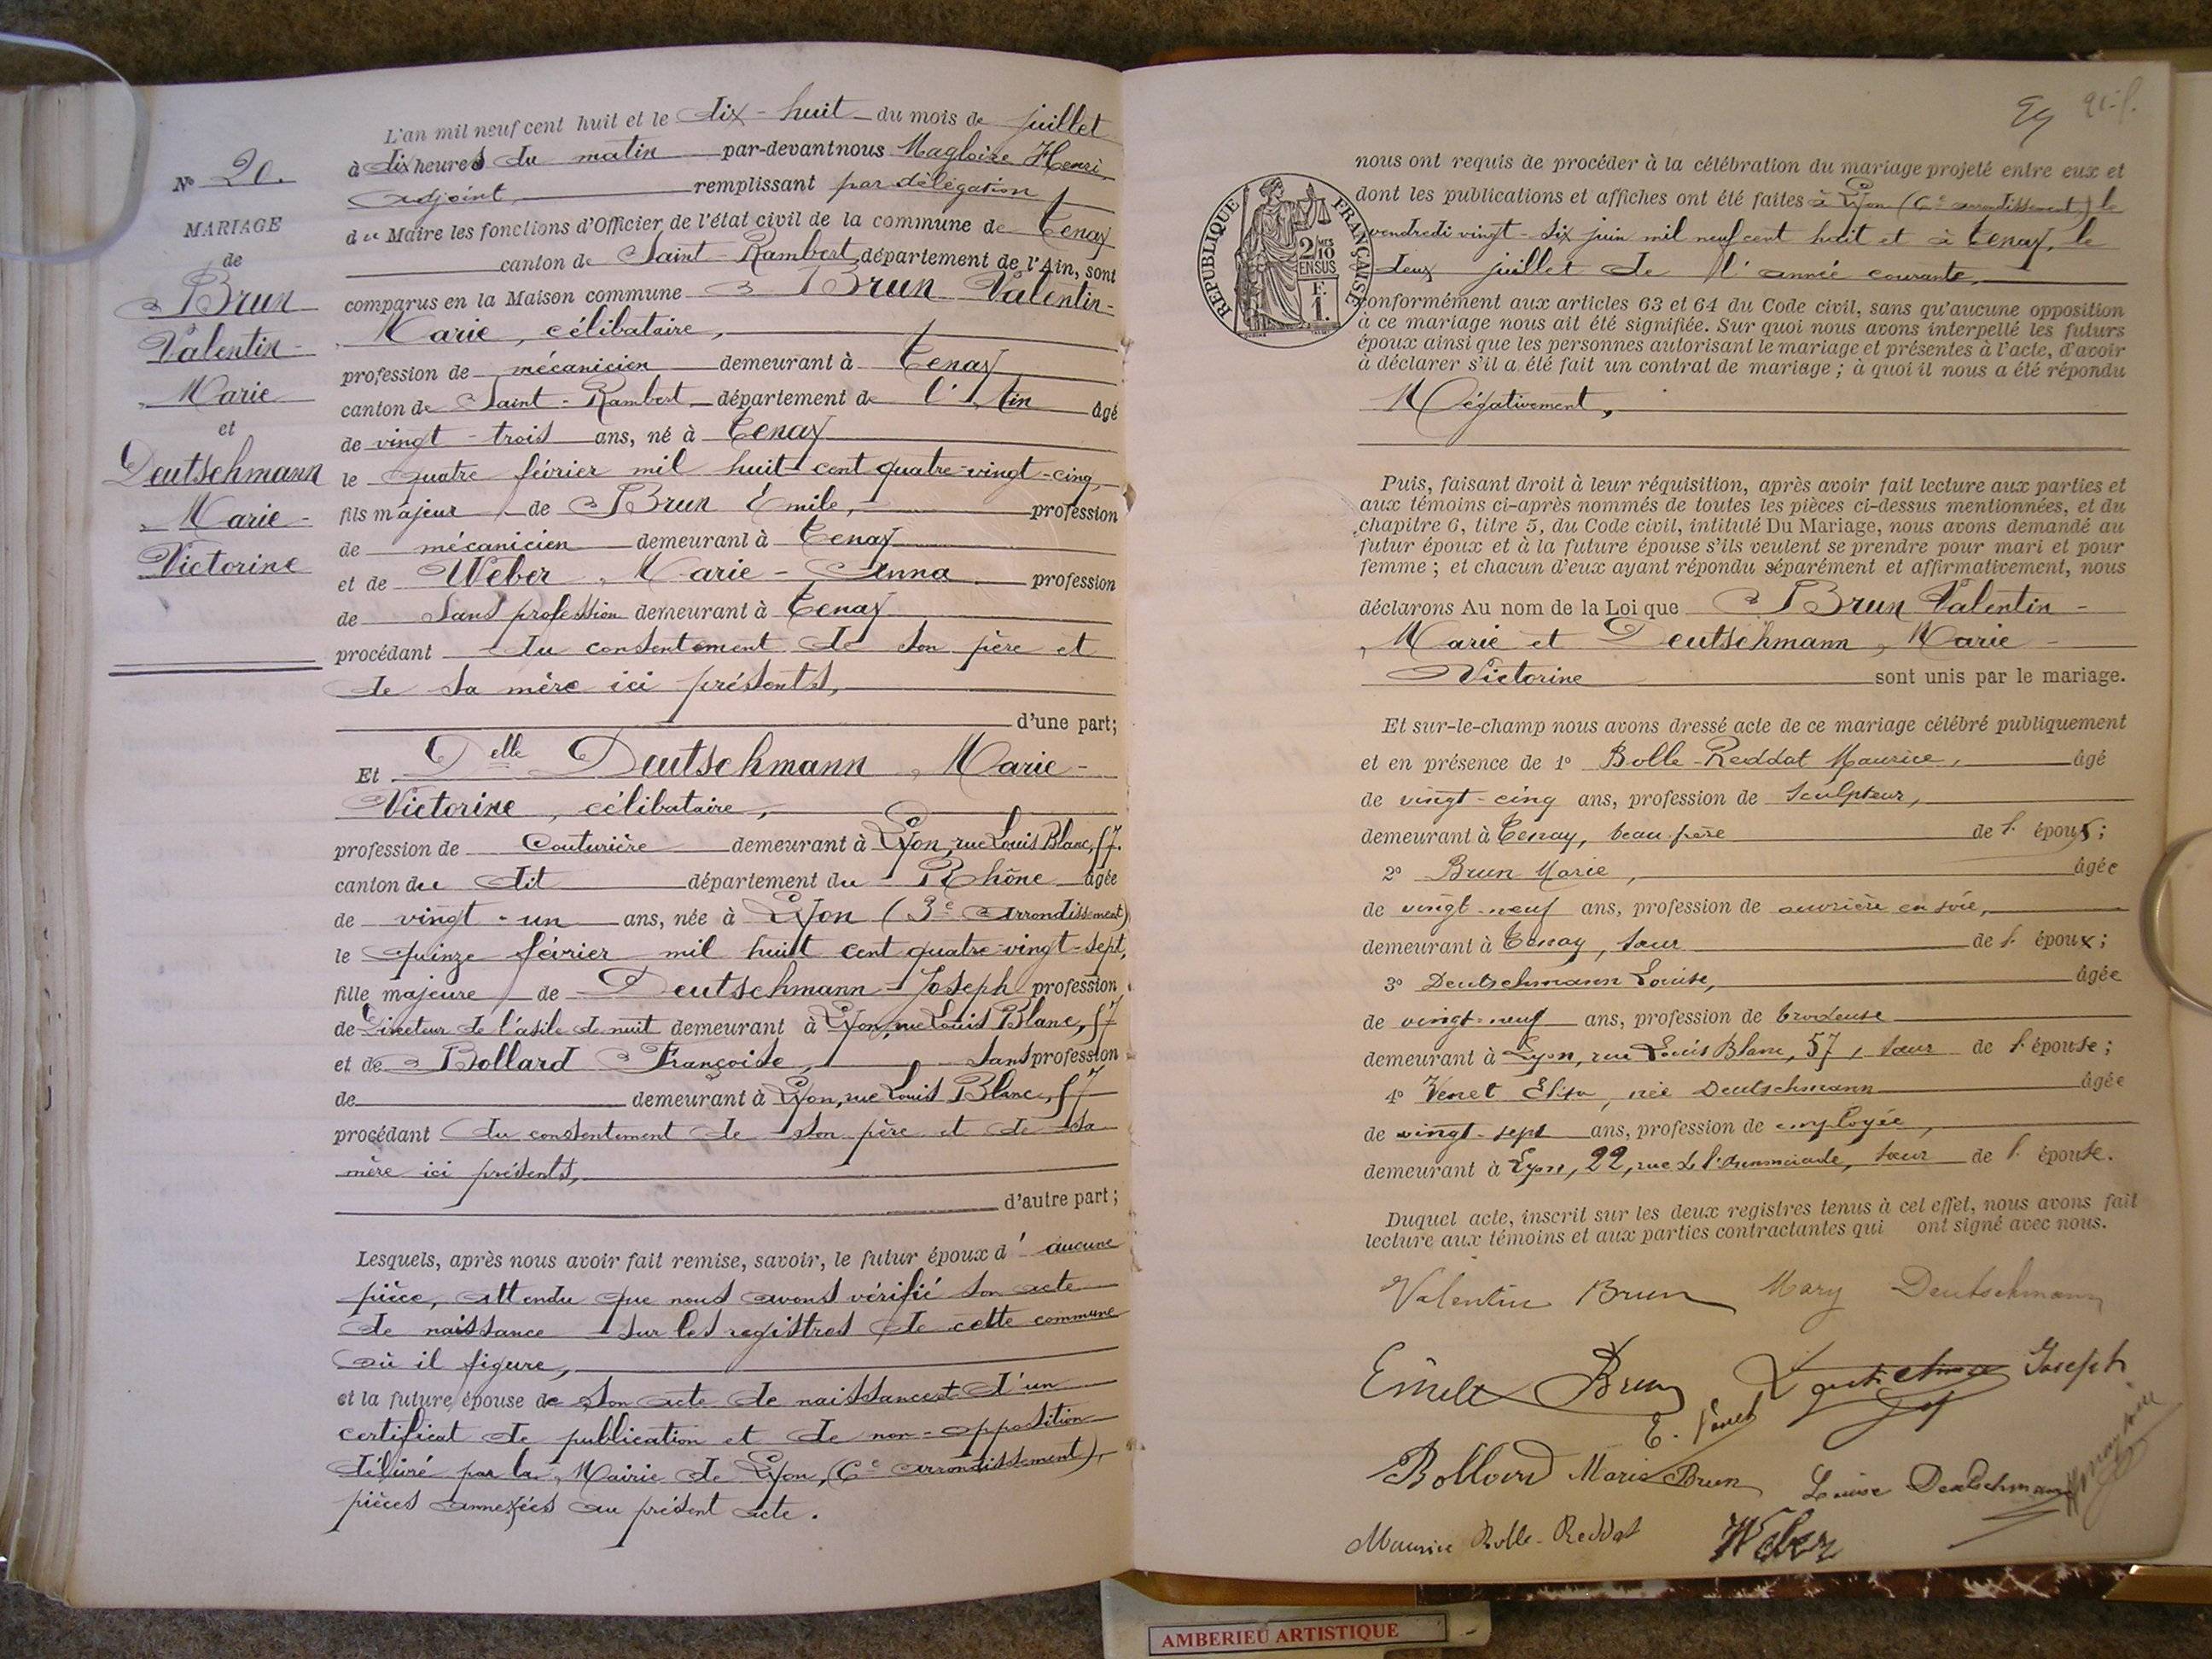 L'an mil neuf cent huit et le dix-huit du mois de juillet
à dix heures du matin par-devant nous Magloire Henri,
adjoint, remplissant par délégation
du Maire les fonctions d'Officier de l'état civil de la commune de Tenay
canton de Saint-Rambert, département de l'Ain, sont
comparus en la Maison commune Brun Valentin-
Marie, célibataire,
profession de mécanicien demeurant à Tenay
canton de Saint-Rambert département de l'Ain âgé
de vingt-trois ans, né à Tenay
le quatre février mil huit cent quatre-vingt-cinq,
fils majeur de Brun Émile, profession
de mécanicien demeurant à Tenay
et de Weber Marie-Anna profession
de sans profession demeurant à Tenay
procédant du consentement de son père et
de sa mère ici présents,
d'une part;
Et Delle Deutschmann Marie-
Victorine, célibataire,
profession de Couturière demeurant à Lyon, rue Louis Blanc, 57.
canton du dit département du Rhône âgée
de vingt-un ans, née à Lyon (3e arrondissement)
le quinze février mil huit cent quatre-vingt-sept,
fille majeure de Deutschmann Joseph profession
de Directeur de l'asile de nuit demeurant à Lyon, rue Louis Blanc, 57
et de Bollard Françoise, sans profession
de demeurant à Lyon, rue Louis Blanc, 57
procédant du consentement de son père et de sa
mère ici présents,
d'autre part;
Lesquels, après nous avoir fait remise, savoir, le futur époux d'aucune
pièce, attendu que nous avons vérifié son acte
de naissance sur les registres de cette commune
où il figure,
et la future épouse de son acte de naissance et d'un
certificat de publication et de non-opposition
délivré par la Mairie de Lyon, (6e arrondissement),
pièces annexées au présent acte.
No 20.
MARIAGE
de
Brun
Valentin-
Marie
et
Deutschmann
Marie-
Victorine
nous ont requis de procéder à la célébration du mariage projeté entre eux et
dont les publications et affiches ont été faites à Lyon (6e arrondissement) le
vendredi vingt-six juin mil neuf cent huit et à Tenay, le
deux juillet de l'année courante,
conformément aux articles 63 et 64 du Code civil, sans qu'aucune opposition
à ce mariage nous ait été signifiée. Sur quoi nous avons interpellé les futurs
époux ainsi que les personnes autorisant le mariage et présentes à l'acte, d'avoir
à déclarer s'il a été fait un contrat de mariage; à quoi il nous a été répondu
Négativement,
RÉPUBLIQUE FRANÇAISE
2 MES 10
EN SUS
F.
1.
Puis, faisant droit à leur réquisition, après avoir fait lecture aux parties et
aux témoins ci-après nommés de toutes les pièces ci-dessus mentionnées, et du
chapitre 6, titre 5, du Code civil, intitulé Du Mariage, nous avons demandé au
futur époux et à la future épouse s'ils veulent se prendre pour mari et pour
femme; et chacun d'eux ayant répondu séparément et affirmativement, nous
déclarons Au nom de la Loi que Brun Valentin-
Marie et Deutschmann Marie-
Victorine sont unis par le mariage.
Et sur-le-champ nous avons dressé acte de ce mariage célébré publiquement
et en présence de 1o Bolle-Reddat Maurice, âgé
de vingt-cinq ans, profession de Sculpteur,
demeurant à Tenay, beau-frère de l'époux;
2o Brun Marie, âgée
de vingt-neuf ans, profession de ouvrière en soie,
demeurant à Tenay, sœur de l'époux;
3o Deutschmann Louise, âgée
de vingt-neuf ans, profession de brodeuse
demeurant à Lyon, rue Louis Blanc, 57, sœur de l'épouse;
4o Venet Elisa, née Deutschmann âgée
de vingt-sept ans, profession de employée,
demeurant à Lyon, 22, rue de l'Annonciade, sœur de l'épouse.
Duquel acte, inscrit sur les deux registres tenus à cet effet, nous avons fait
lecture aux témoins et aux parties contractantes qui ont signé avec nous.
Valentin Brun Mary Deutschmann
Emile Brun Deutschmann Joseph
E. Venet
Bollard Marie Brun Louise Deutschmann
Maurice Bolle-Reddat Weber
AMBERIEU ARTISTIQUE